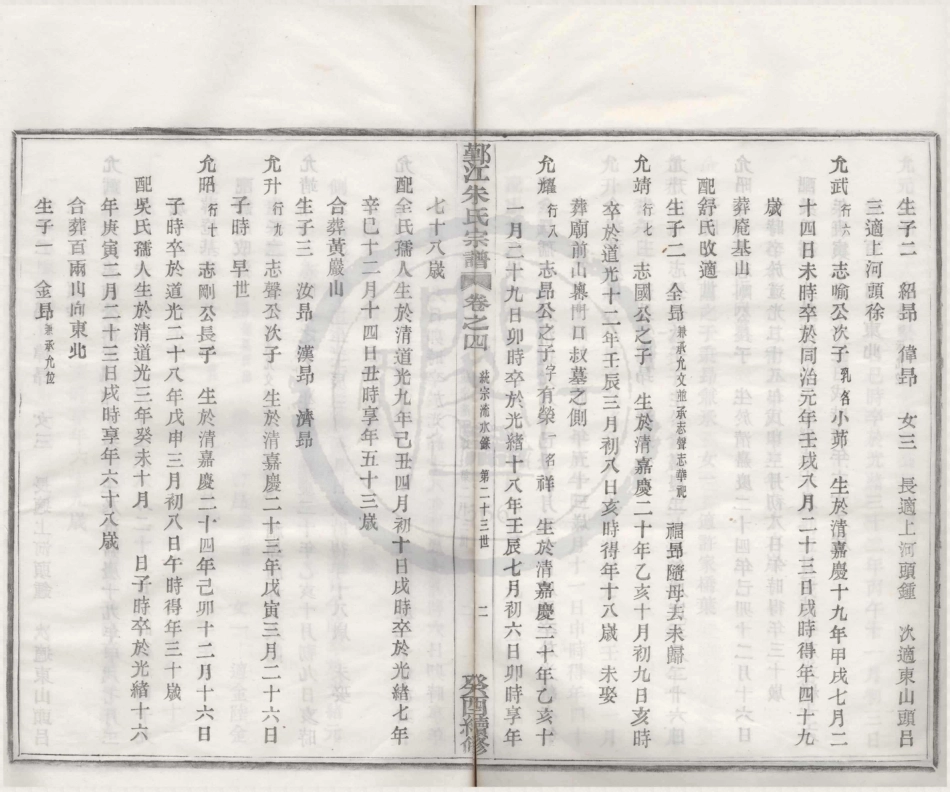 生子二 紹昂 偉昂 女三 長適上河頭鍾 次適東山頭呂
三適上河頭徐
允武行六 志喻公次子乳名小茀 生於清嘉慶十九年甲戌七月二
十四日未時卒於同治元年壬戌八月二十三日戌時得年四十九
歲
葬庵基山
配舒氏改適
生子二 全昂兼承允文並承志聲志華祀 福昂隨母去未歸
允靖行七 志國公之子 生於清嘉慶二十年乙亥十月初九日亥時
卒於道光十二年壬辰三月初八日亥時得年十八歲 未娶
葬廟前山 門口叔墓之側
允耀行八 志昂公之子字有榮一名祥 生於清嘉慶二十年乙亥十
一月二十九日卯時卒於光緒十八年壬辰七月初六日卯時享年
鄞江朱氏宗譜 卷之四 統宗流水錄 第二十三世 二 癸酉續修
七十八歲
配全氏孺人生於清道光九年己丑四月初十日戌時卒於光緒七年
辛巳十二月十四日丑時享年五十三歲
合葬黃嚴山
生子三 汝昂 漢昂 濟昂
允升行九 志聲公次子 生於清嘉慶二十三年戊寅三月二十六日
子時 早世
允昭行十 志剛公長子 生於清嘉慶二十四年己卯十二月十六日
子時卒於道光二十八年戊申三月初八日午時得年三十歲
配吳氏孺人生於清道光三年癸未十月 日子時卒於光緒十六
年庚寅二月二十三日戌時享年六十八歲
合葬百兩山向東北
生子一 金昂兼承允位